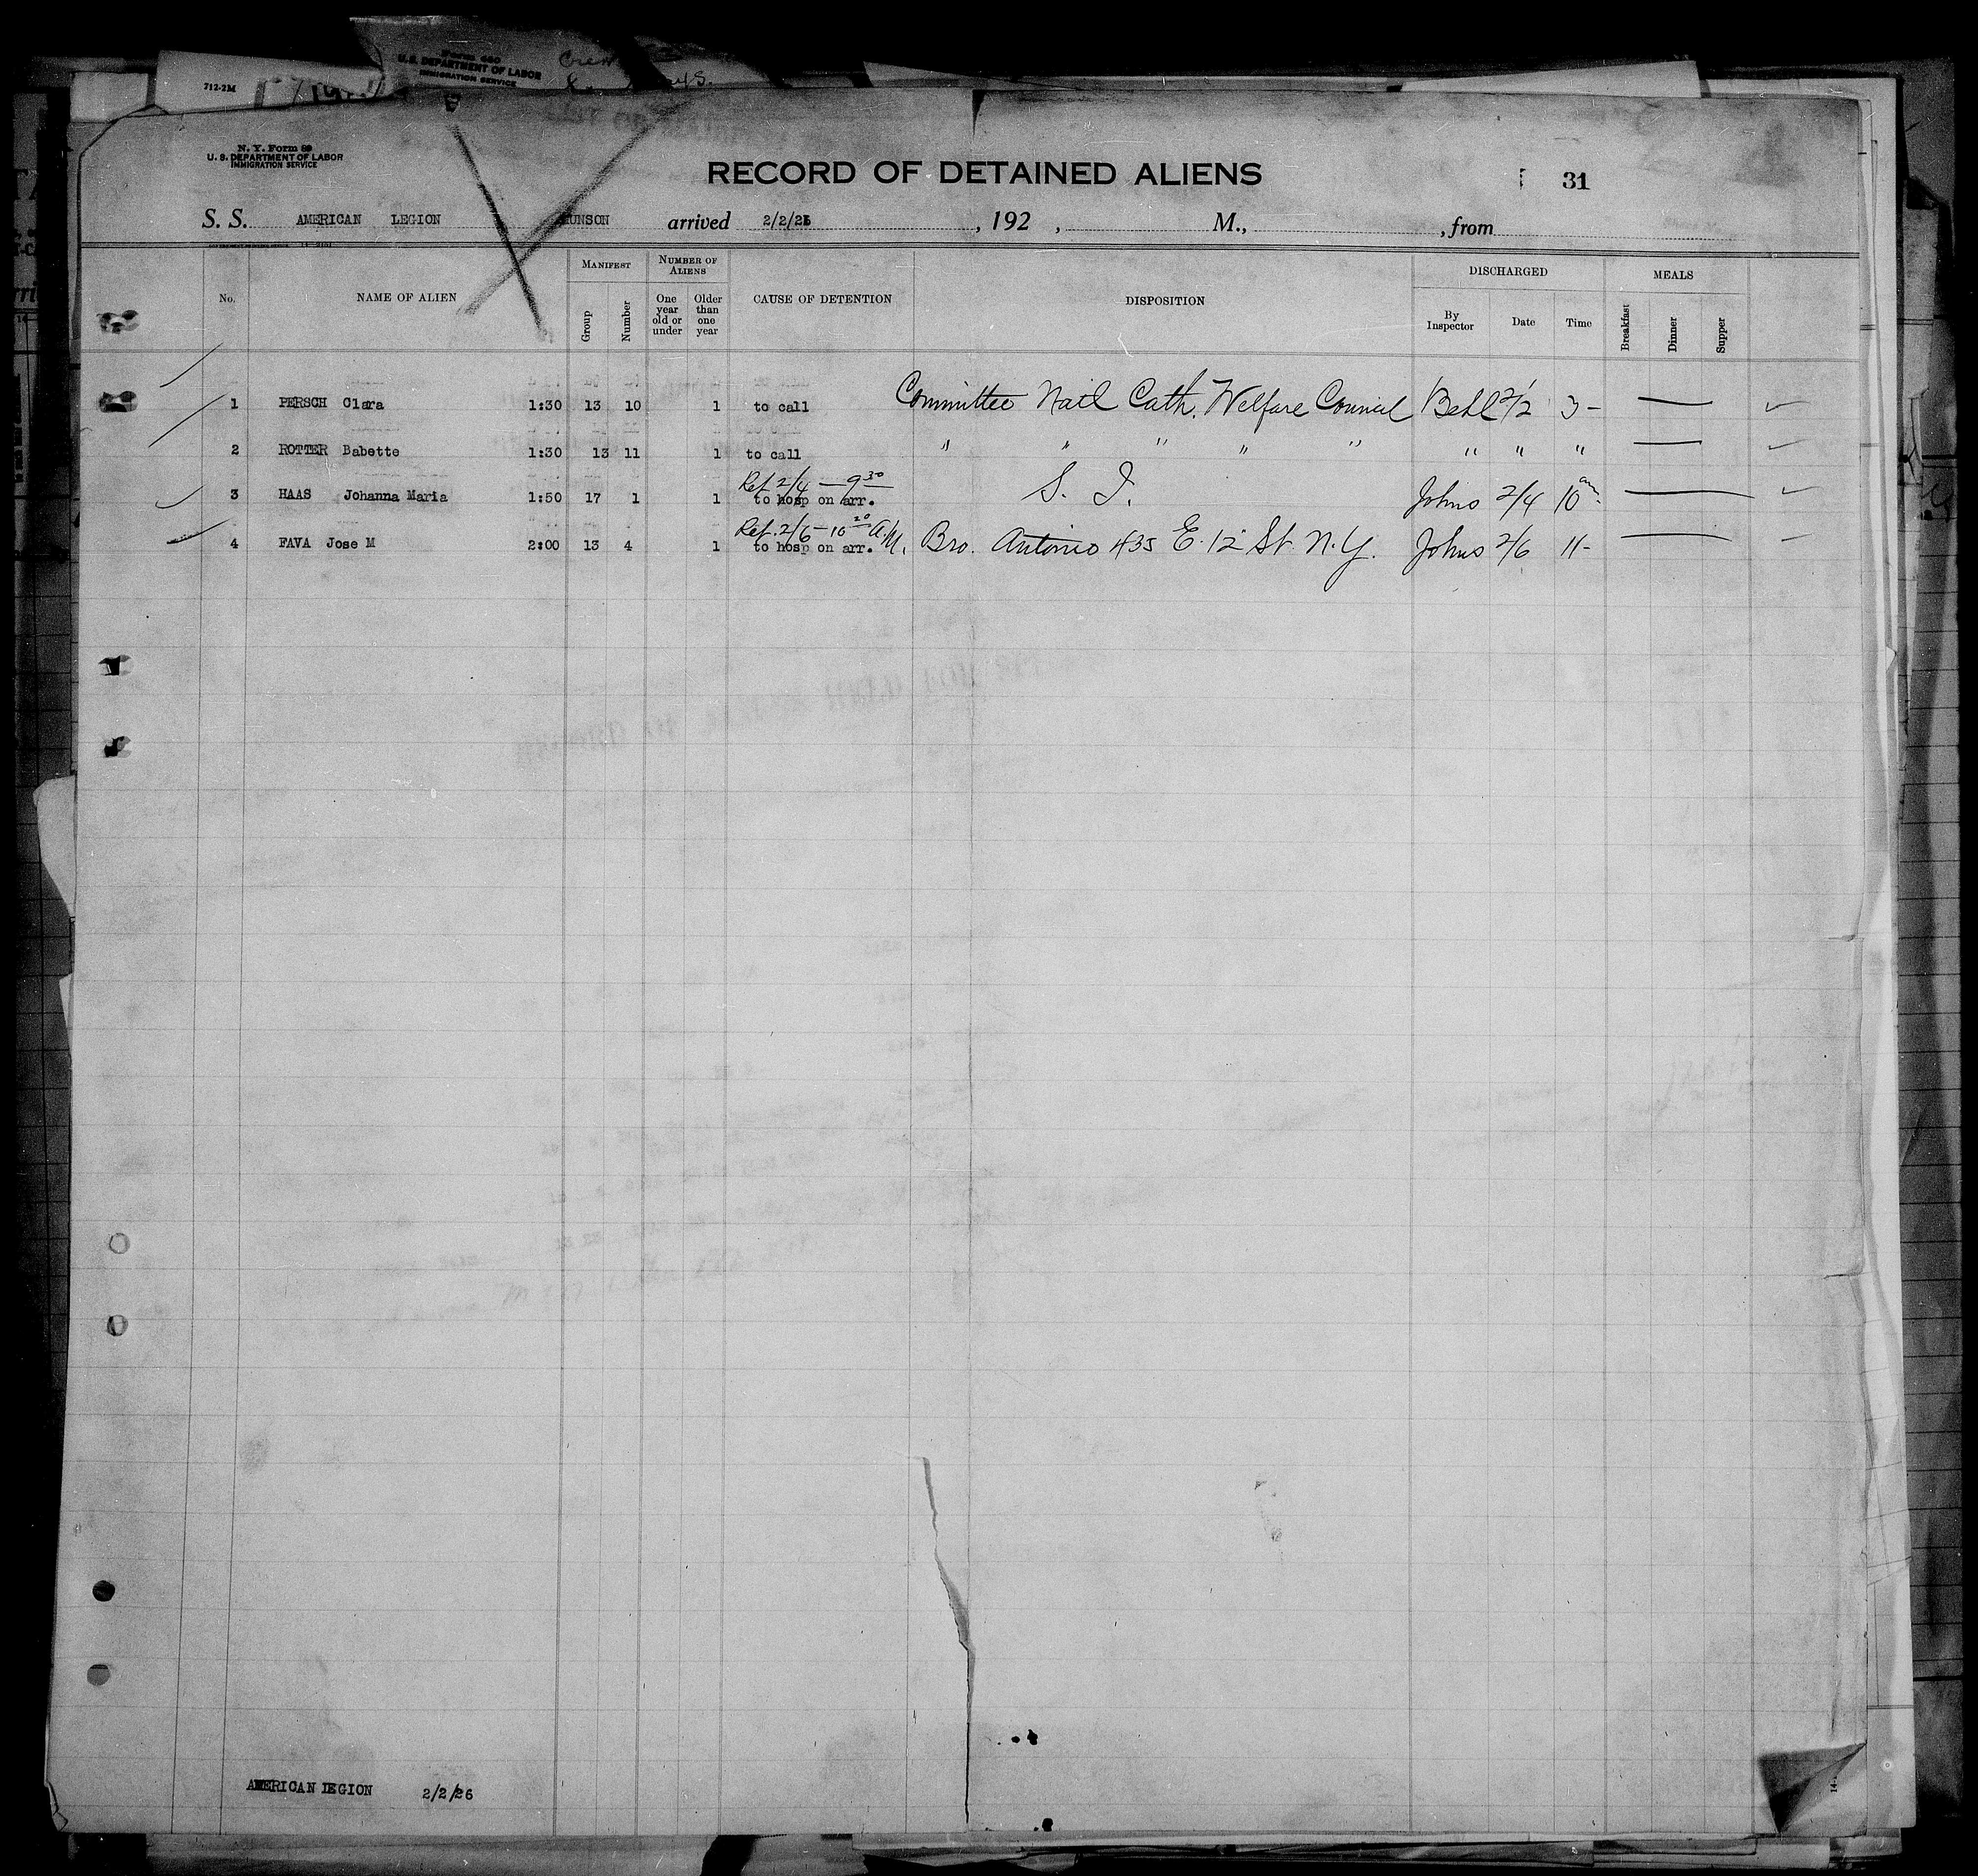 712-2M
Form 660
U. S. DEPARTMENT OF LABOR
IMMIGRATION SERVICE
N. Y. Form 89
U. S. DEPARTMENT OF LABOR
IMMIGRATION SERVICE
RECORD OF DETAINED ALIENS 31
S. S. AMERICAN LEGION MUNSON arrived 2/2/26 , 192 , M., , from
No. NAME OF ALIEN MANIFEST NUMBER OF ALIENS CAUSE OF DETENTION DISPOSITION DISCHARGED MEALS
Group Number One year old or under Older than one year By Inspector Date Time Breakfast Dinner Supper
1 PERSCH Clara 1:30 13 10 1 to call Committee Natl Cath. Welfare Council Behl 2/2 3-
2 ROTTER Babette 1:30 13 11 1 to call " " " " " " " "
Ref 2/4 — 9 30
3 HAAS Johanna Maria 1:50 17 1 1 to hosp on arr. S. I. Johns 2/4 10 am
Ref. 2/6 - 10 20 A.M.
4 FAVA Jose M 2:00 13 4 1 to hosp on arr. Bro. Antonio 435 E. 12 St. N.Y. Johns 2/6 11-
AMERICAN LEGION 2/2/26